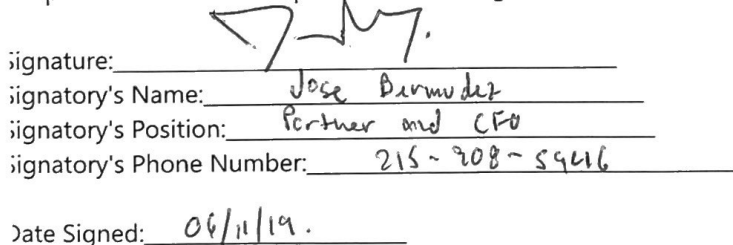 ignature:
ignatory's Name: Jose Bermudez
ignatory's Position: Partner and CFO
ignatory's Phone Number: 215-
ate Signed: 06/11/19.